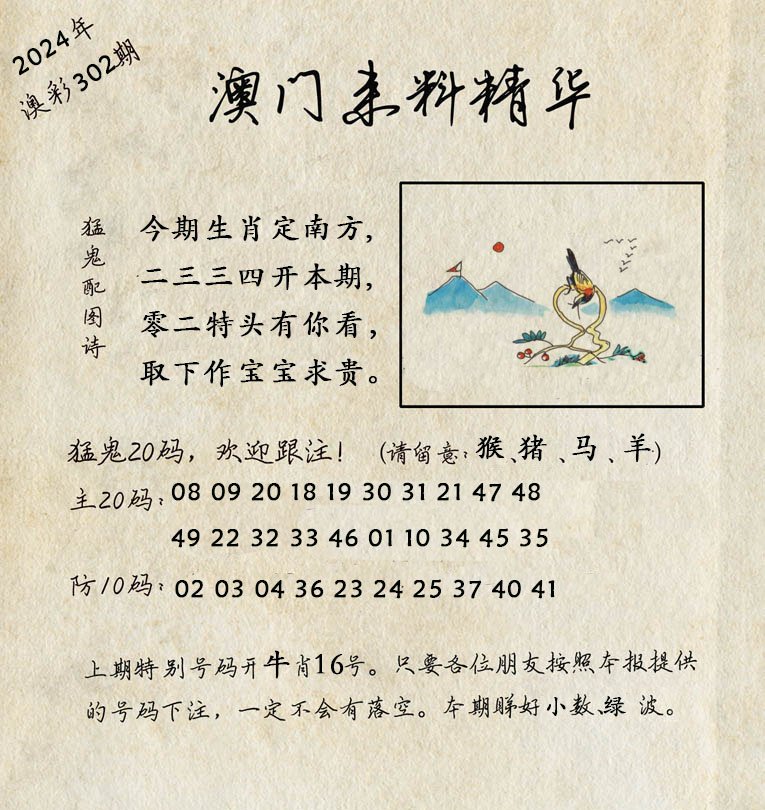 2024年
澳彩302期
澳门来料精华
猛鬼配图诗
今期生肖定南方,
二三三四开本期,
零二特头有你看,
取下作宝宝求贵。
猛鬼20码，欢迎跟注！（请留意：猴、猪、马、羊）
主20码：08 09 20 18 19 30 31 21 47 48
49 22 32 33 46 01 10 34 45 35
防10码：02 03 04 36 23 24 25 37 40 41
上期特别号码开牛肖16号。只要各位朋友按照本报提供
的号码下注，一定不会有落空。本期睇好小数、绿 波。